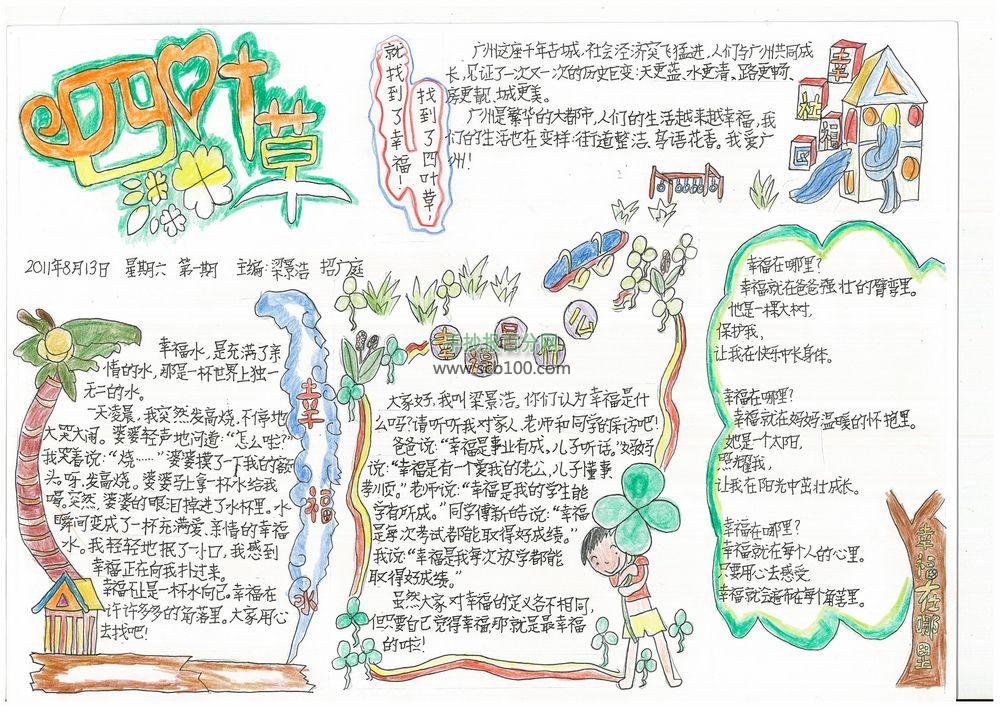 四叶草
找到了四叶草，
就找到了幸福！
广州这座千年古城，社会经济突飞猛进，人们与广州共同成
长，见证了一次又一次的历史巨变：天更蓝、水更清、路更畅、
房更靓、城更美。
广州是繁华的大都市，人们的生活越来越幸福，我
们的生活也在变样：街道整洁、鸟语花香。我爱广
州！
幸
福
社
区
2011年8月13日 星期六 第一期 主编：梁景浩 招广庭
幸福水，是充满了亲
情的水，那是一杯世界上独一
无二的水。
一天凌晨，我突然发高烧，不停地
大哭大闹。婆婆轻声地问道：“怎么啦？”
我哭着说：“烧……”婆婆摸了一下我的额
头。呀，发高烧。婆婆马上拿一杯水给我
喝。突然，婆婆的眼泪掉进了水杯里。水
瞬间变成了一杯充满爱、亲情的幸福
水。我轻轻地抿了一小口，我感到
幸福正在向我扑过来。
幸福不止是一杯水而已。幸福在
许许多多的角落里。大家用心
去找吧！
幸福水
幸福是什么
手抄报百分网
www.scb100.com
大家好，我叫梁景浩。你们认为幸福是什
么吗？请听听我对家人、老师和同学的采访吧！
爸爸说：“幸福是事业有成，儿子听话。”妈妈
说：“幸福是有一个爱我的老公，儿子懂事
孝顺。”老师说：“幸福是我的学生能
学有所成。”同学傅新皓说：“幸福
是每次考试都能取得好成绩。”
我说：“幸福是我每次放学都能
取得好成绩。”
虽然大家对幸福的定义各不相同，
但只要自己觉得幸福，那就是最幸福
的啦！
幸福在哪里？
幸福就在爸爸强壮的臂弯里。
他是一棵大树，
保护我，
让我在快乐中长身体。
幸福在哪里？
幸福就在妈妈温暖的怀抱里。
她是一个太阳，
照耀我，
让我在阳光中茁壮成长。
幸福在哪里？
幸福就在每个人的心里。
只要用心去感受，
幸福就会遍布在每个角落里。
幸福在哪里